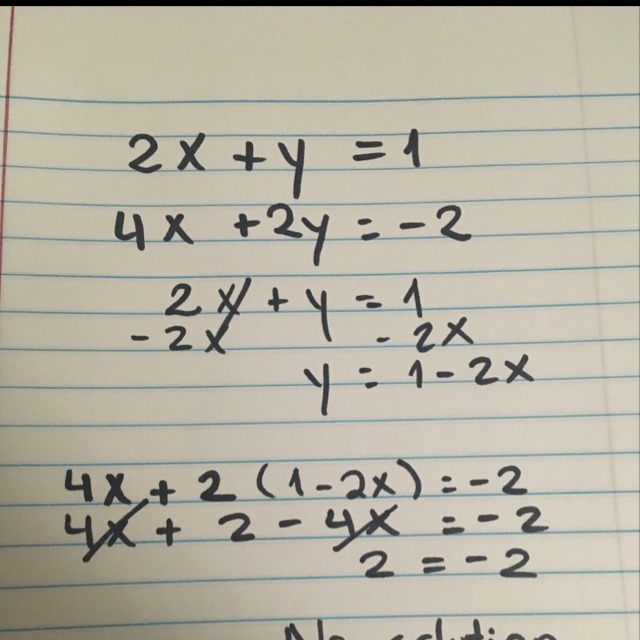 2x + y = 1
4x + 2y = -2
2x + y = 1
- 2x - 2x
y = 1 - 2x
4x + 2 (1 - 2x) = -2
4x + 2 - 4x = -2
2 = -2
No solution